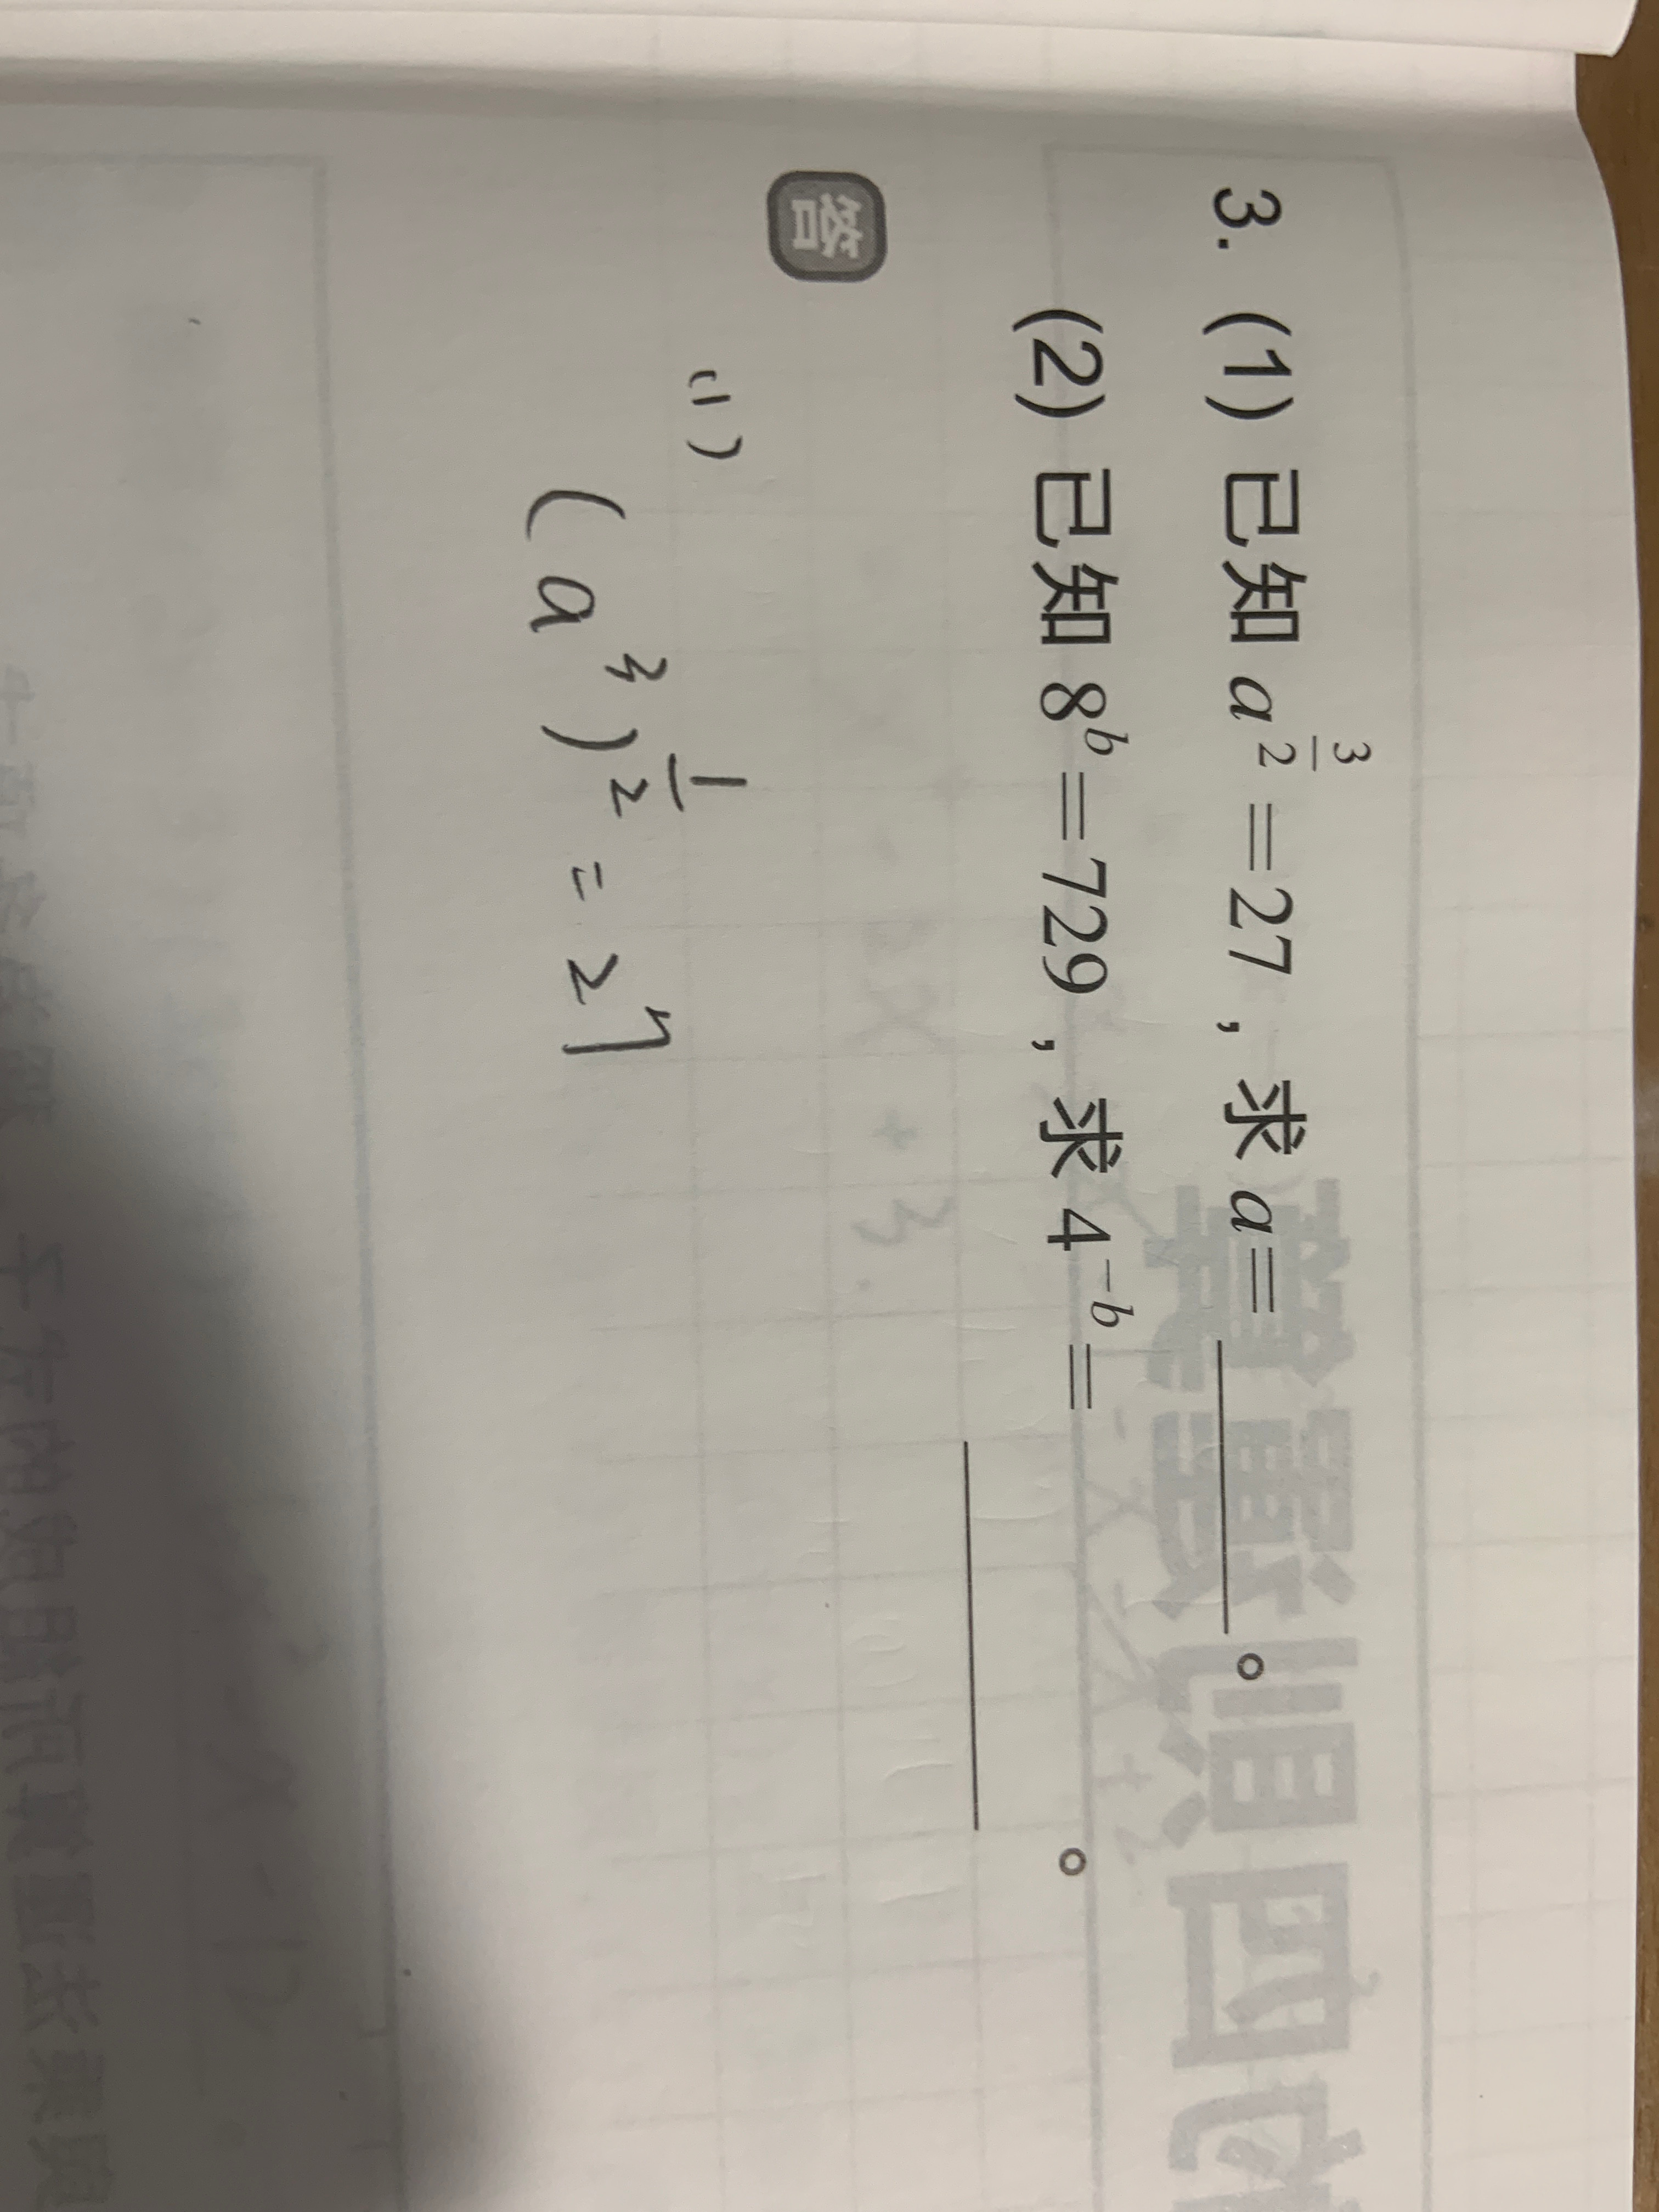 3. (1) 已知 a^{3/2}=27，求 a=______。
(2) 已知 8^b=729，求 4^{-b}=
______。
答
(1)
(a^3)^{1/2} = 27